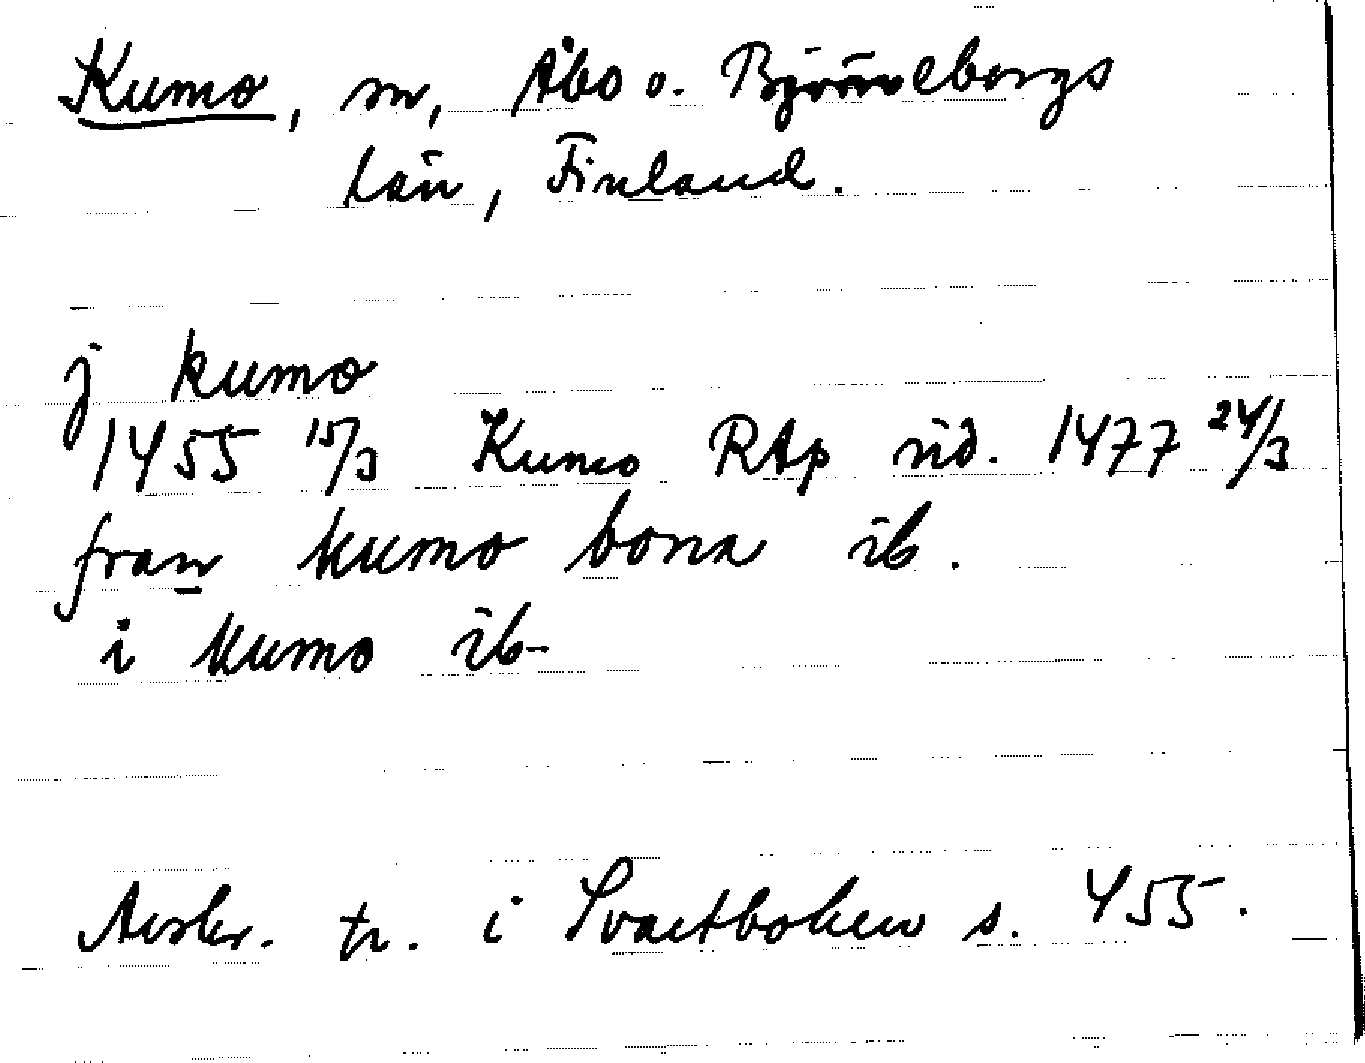 Kumo, sn, Åbo o. Björneborgs
län, Finland.
j kumo
1455 15/3 Kumo RAp vid. 1477 24/3
fran kumo bona ib.
i kumo ib.
Avskr. tr. i Svartboken s. 455.